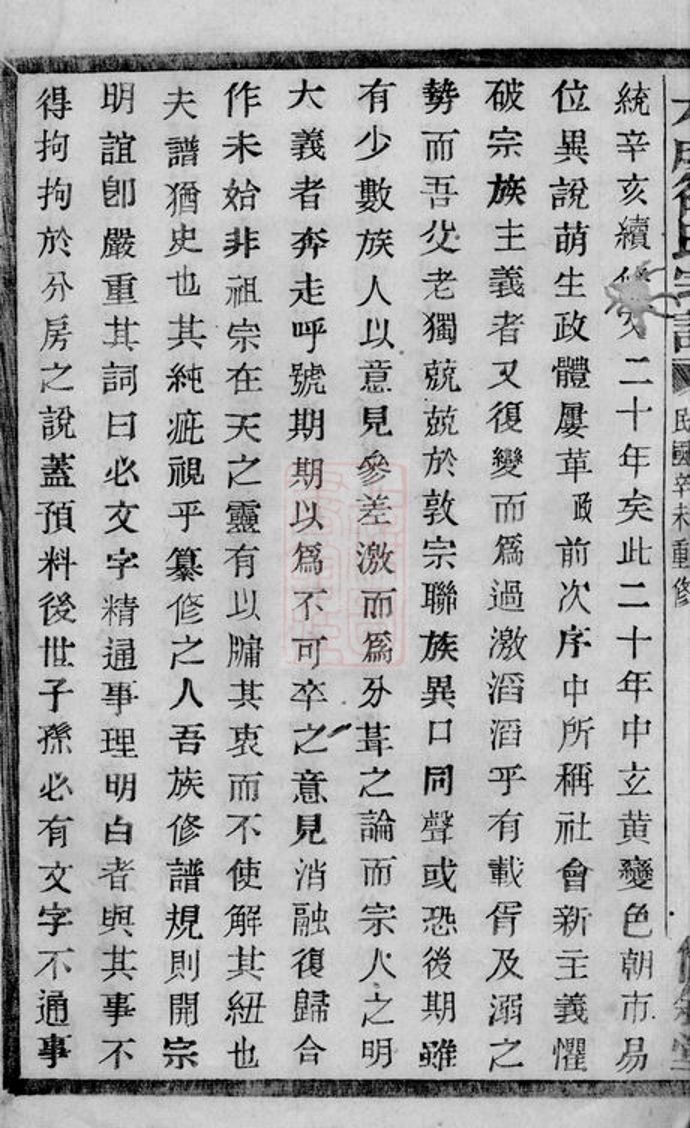 民國辛未重修
統辛亥續修久二十年矣此二十年中玄黃變色朝市易
位異說萌生政體屢革政前次序中所稱社會新主義懼
破宗族主義者又復變而爲過激滔滔乎有載胥及溺之
勢而吾父老獨兢兢於敦宗聯族異口同聲或恐後期雖
有少數族人以意見參差激而爲分葺之論而宗人之明
大義者奔走呼號期期以爲不可卒之意見消融復歸合
作未始非祖宗在天之靈有以牖其衷而不使解其紐也
夫譜猶史也其純疵視乎纂修之人吾族修譜規則開宗
明誼卽嚴重其詞曰必文字精通事理明白者與其事不
得拘拘於分房之說蓋預料後世子孫必有文字不通事